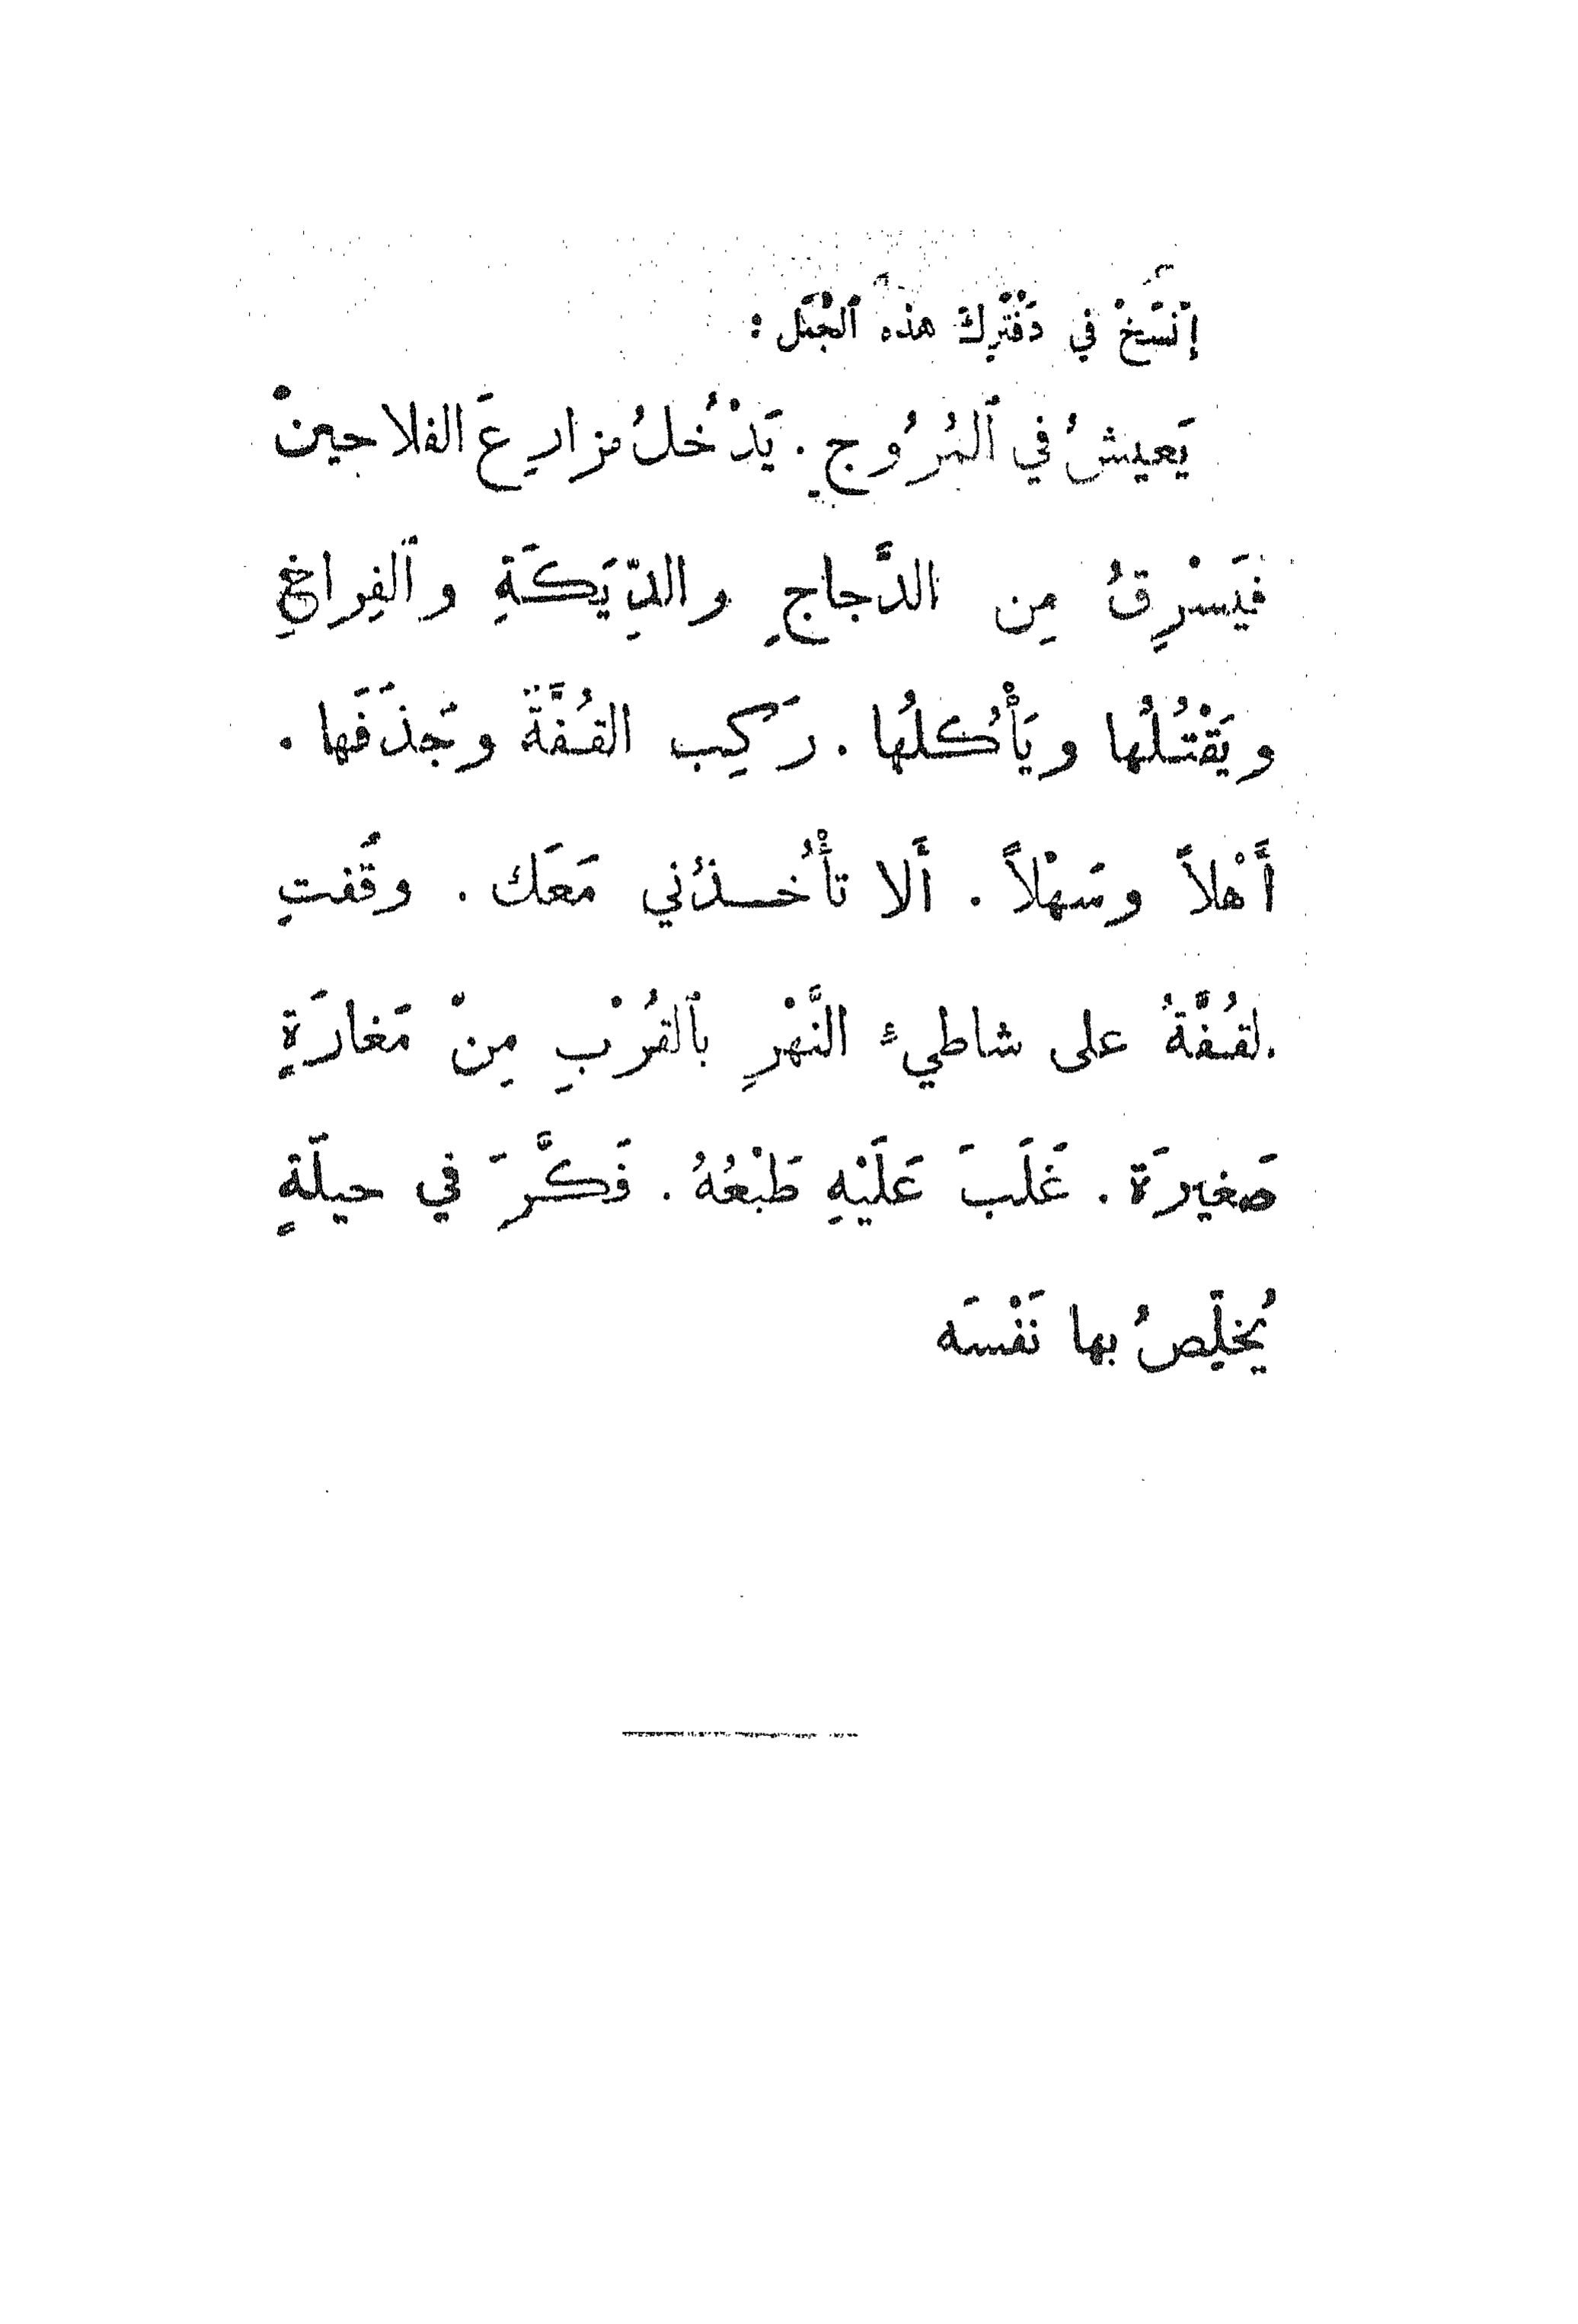 إنْسَخْ في دَفْتَرِكَ هذه ٱلجُمَل :
يَعيشُ في ٱلمُرُوجِ . يَدْخُلُ مزارِعَ الفلاحينْ
فيَسْرِقُ مِن الدَّجاجِ والدِّيَكَةِ وٱلفِراخِ
ويَقْتُلُها ويَأْكُلُها . رَكِب القُفَّةَ وجَذَفَها .
أَهْلاً وسَهْلاً . أَلا تأْخُذُني مَعَك . وقَفتِ
لقُفَّةُ على شاطيءِ النَّهْرِ بٱلقُرْبِ مِنْ مَغارَةٍ
صَغيرَة . غَلَبَ عَلَيْهِ طَبْعُهُ . فَكَّرَ في حيلَةٍ
يُخلِّصُ بها نَفْسَه